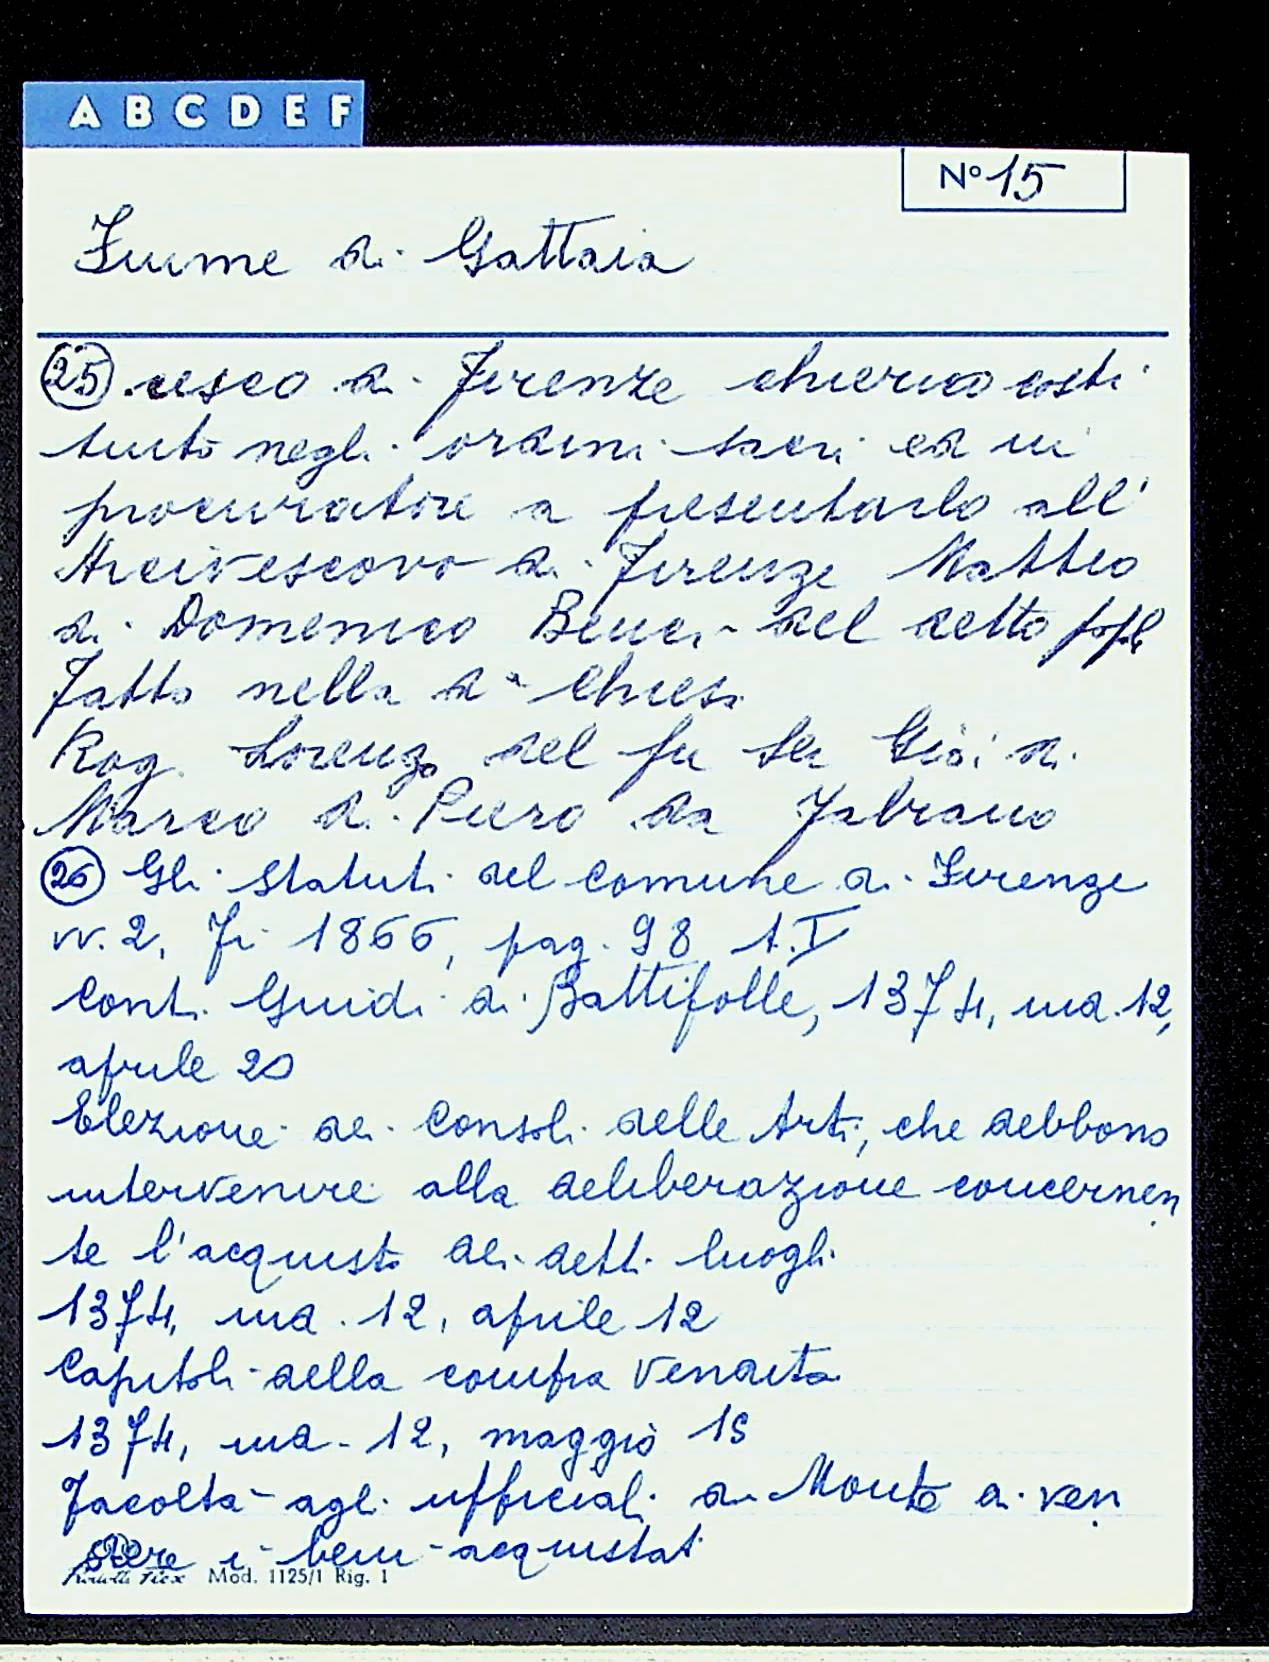 A B C D E F
N° 15
Fiume di Gattaia
25 .cesco di Firenze chierico costi
tuito negli ordini sacri ed in
procuratore a presentarlo all'
Arcivescovo di Firenze Matteo
di Domenico Benci del detto popl
Fatto nella da Chiesa
Rog. Lorenzo del fu Ser Gio: di
Marco di Piero da Fabrano
26 Gli Statuti del Comune di Firenze
vv. 2, Fi 1866, pag. 98 t. I
Conti Guidi di Battifolle, 1374, ind. 12,
aprile 20
Elezione dei Consoli delle Arti, che debbono
intervenire alla deliberazione concernen
te l'acquisto dei detti luoghi
1374, ind. 12, aprile 12
Capitoli della compra vendita
1374, ind. 12, maggio 15
Facoltà agli ufficiali di Monte di ven
dere i beni acquistati
Mod. 1125/1 Rig. 1